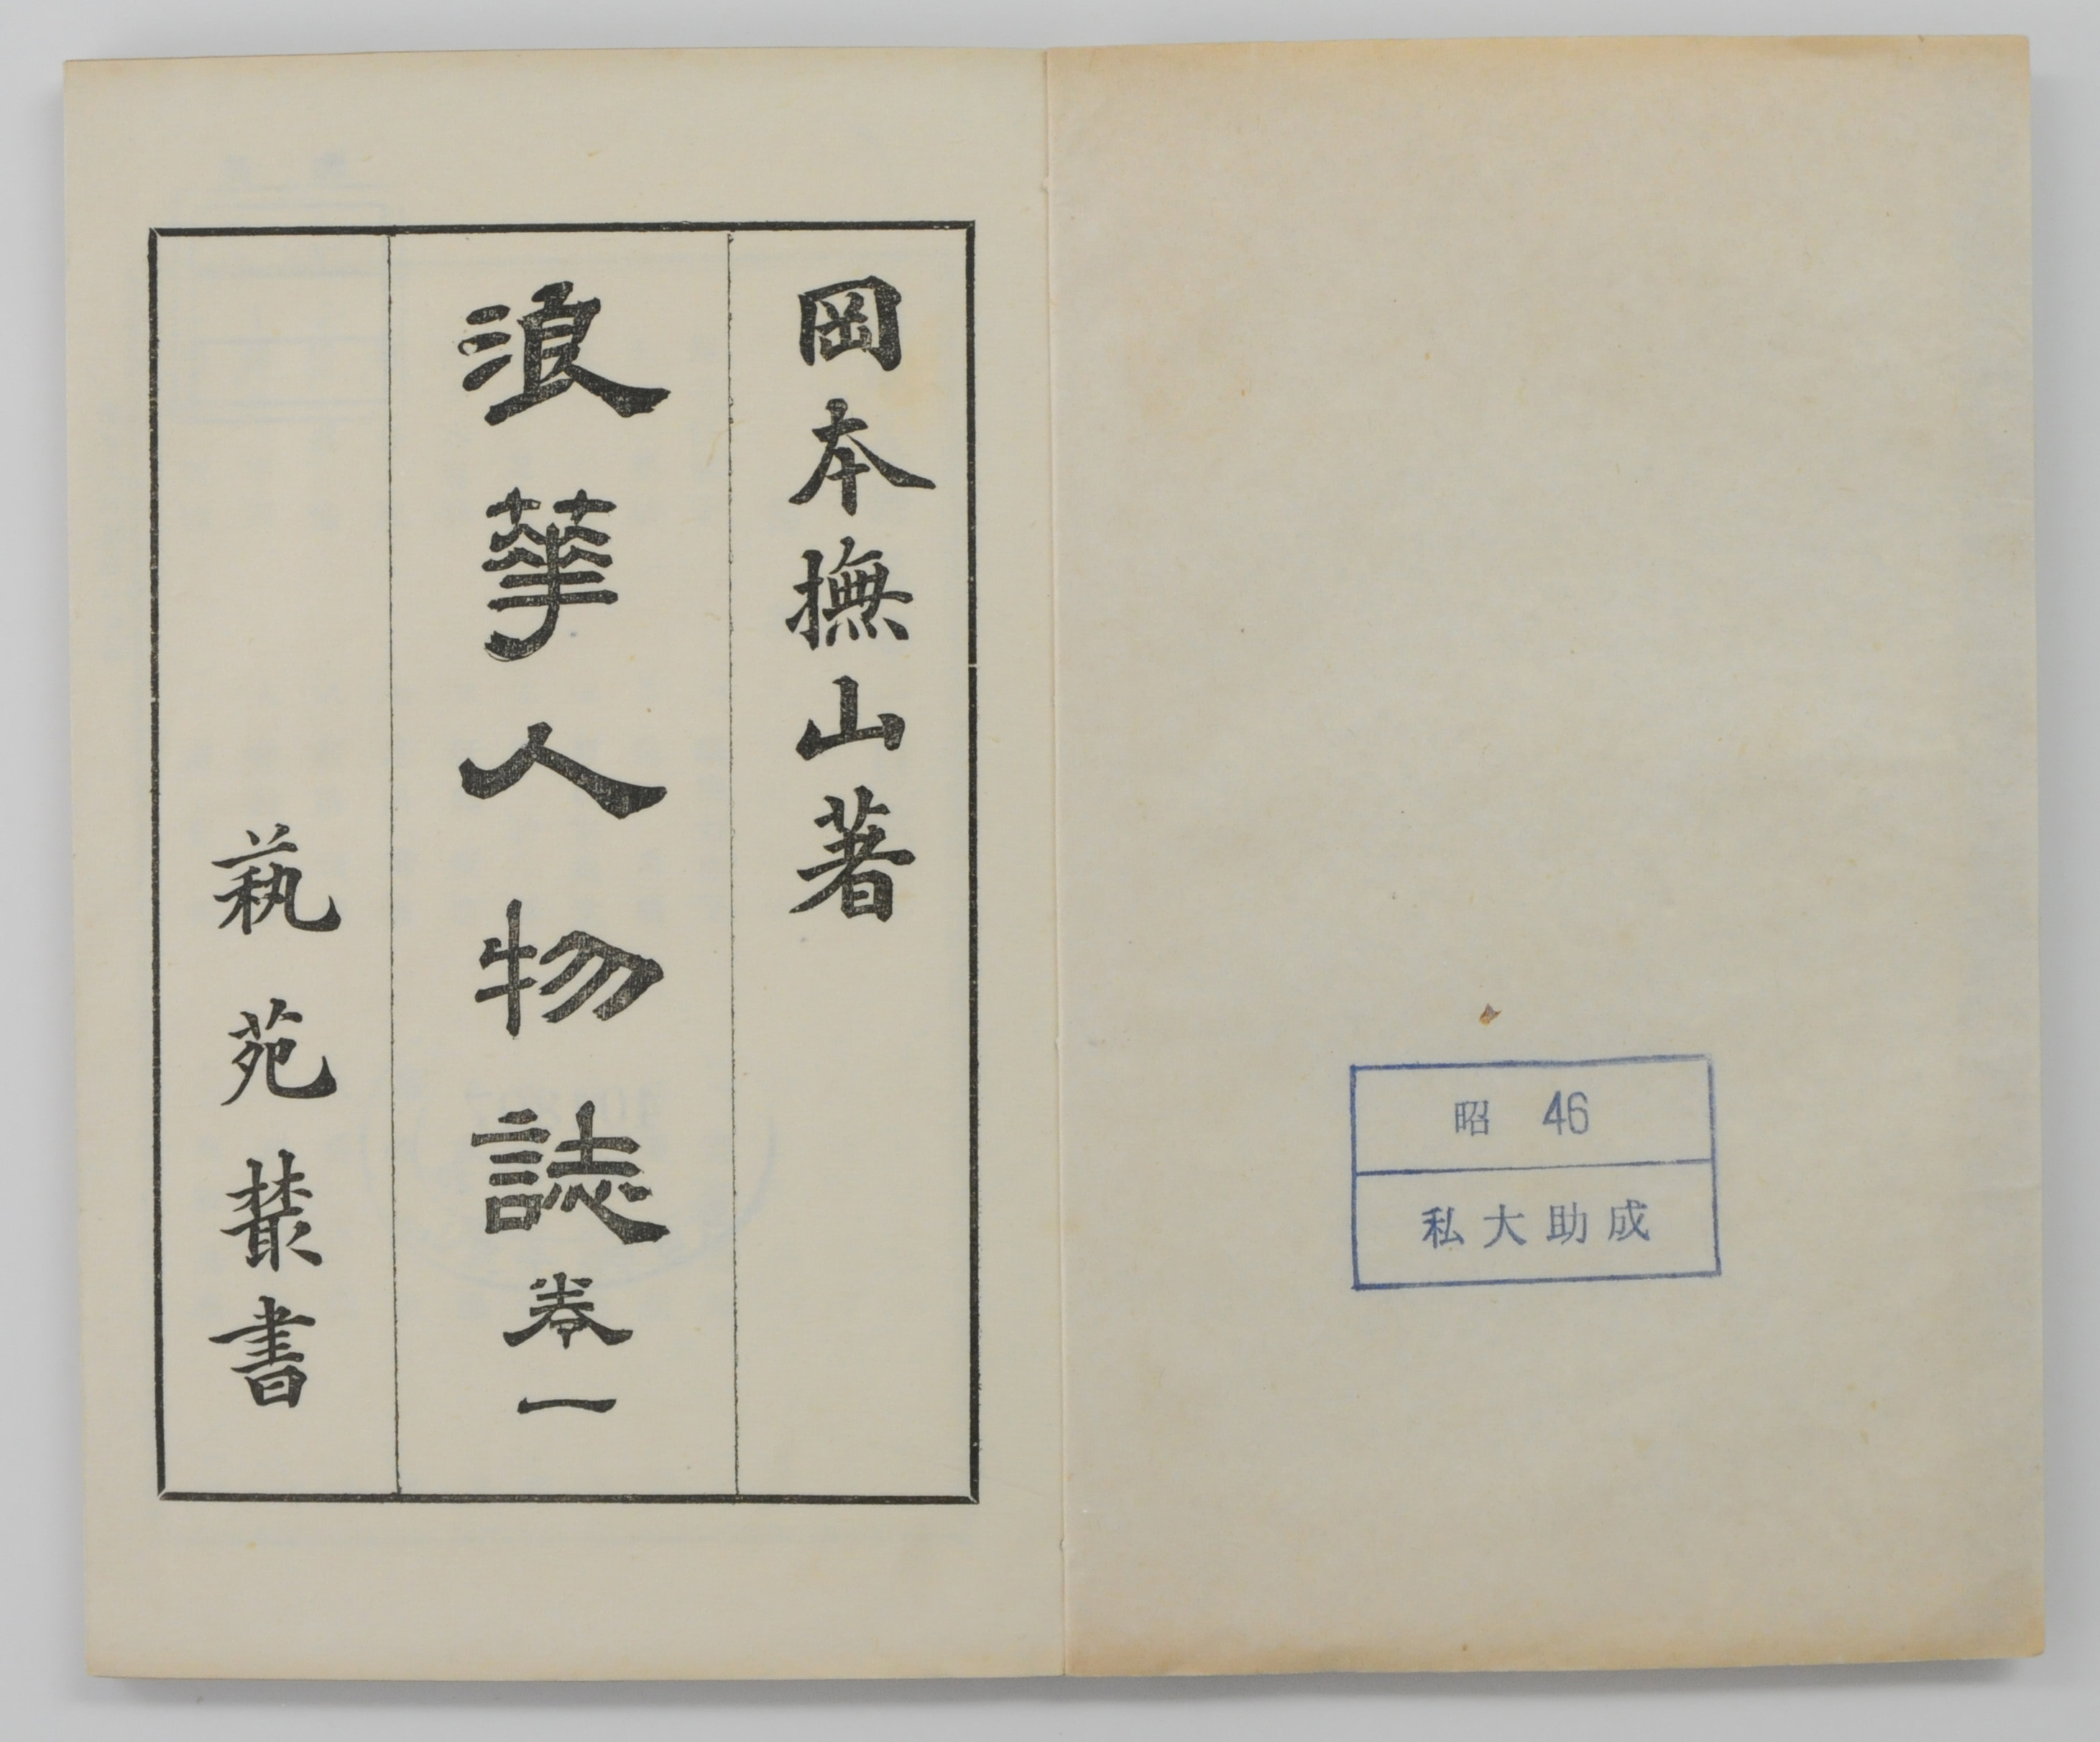 昭 46
私大助成
岡本撫山著
浪華人物誌 卷一
蓺苑叢書